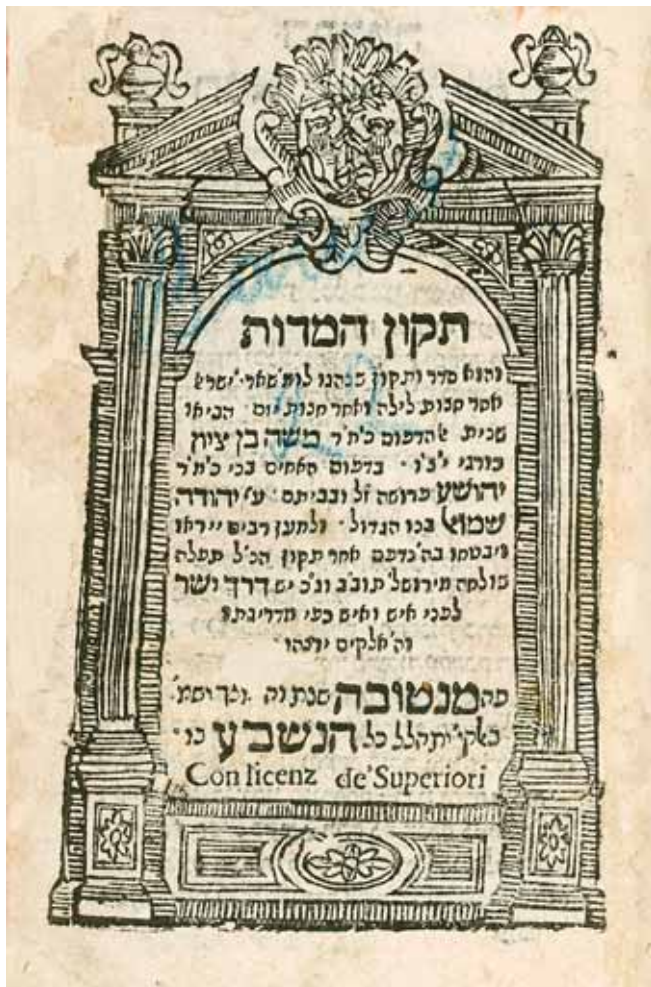 תקון המדות
והוא סדר ותקון שנהגו לומ' שארי' ישראל
אחר חצות לילה ואחר חצות יום
שנית כ'ה'ר משה בן ציון
י'צ'ו בדפוס האחים בני כ'ה'ר
יהושע ז'ל ובביתם ע'י יהודה
שמואל בנו הגדול ולמען רבים ייראו
ויבטחו בה' נדפס אחר תקון הכ'ל תפלה
מירושל' תוב'ב וג'כ יש דרך ישר
לפני איש ואיש כפי מדריגתו
וה'אלקים ינחהו
פה מנטובה שנת וה
יתהלל כל הנשבע בו
Con licenz de' Superiori